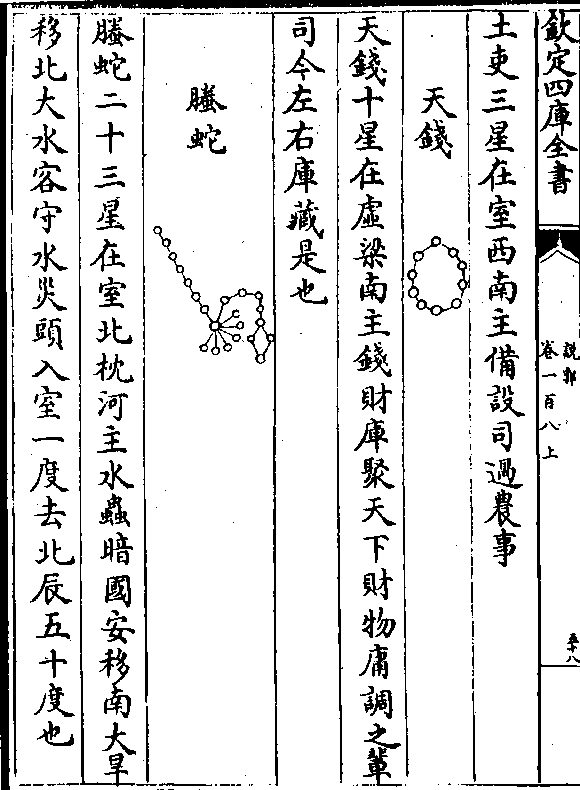 欽定四庫全書
說郛
卷一百八上
五十八
土吏三星在室西南主備設司過農事
天錢
天錢十星在虛梁南主錢財庫聚天下財物庸調之輩
司今左右庫藏是也
螣蛇
螣蛇二十三星在室北枕河主水蟲暗國安移南大旱
移北大水客守水災頭入室一度去北辰五十度也